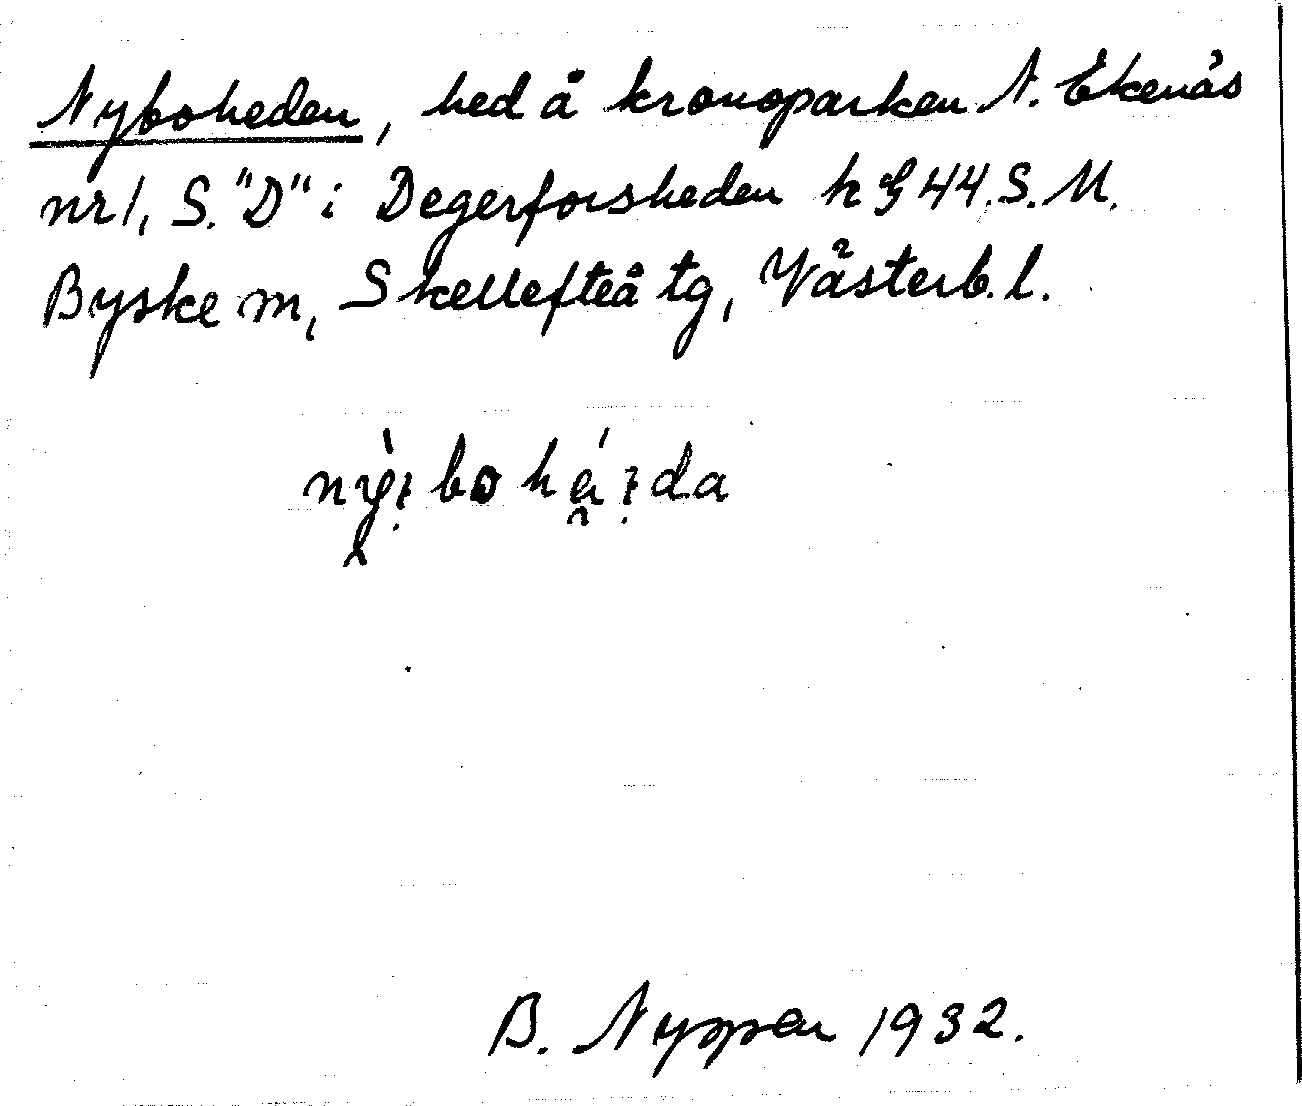 Nyboheden, hed å kronoparken N. Ekenäs
nr 1, S. "D" i Degerforsheden h G 44. S. M.
Byske m, Skellefteå tg, Västerb. l.
nỳ:bo há:da
B. Nyppen 1932.